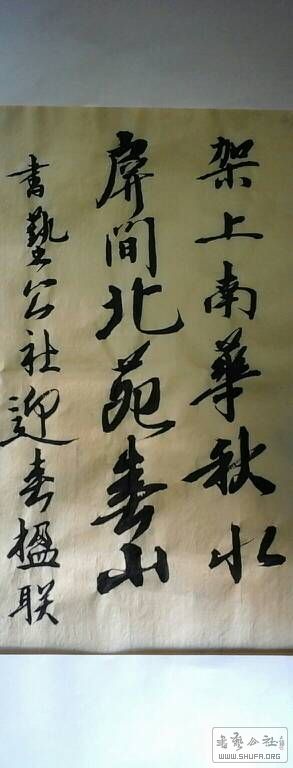 架上南華秋水
屏間北苑春山
書藝公社迎春楹联
书艺公社
WWW.SHUFA.ORG